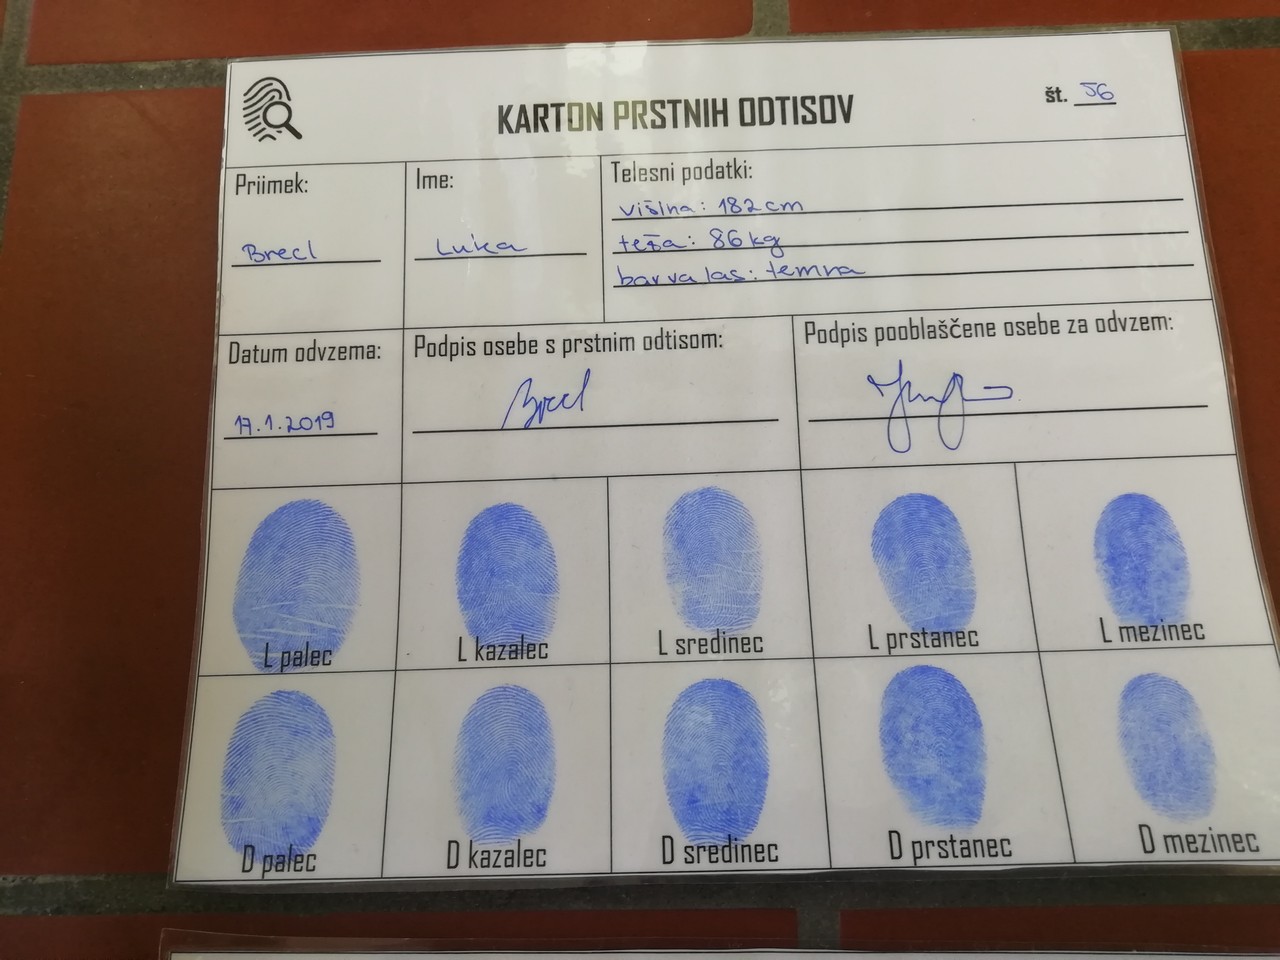 KARTON PRSTNIH ODTISOV
št. 56
Priimek:
Brecl
Ime:
Luka
Telesni podatki:
višina: 182 cm
teža: 86 kg
barva las: temna
Datum odvzema:
17.1.2019
Podpis osebe s prstnim odtisom:
Brecl
Podpis pooblaščene osebe za odvzem:
L palec
L kazalec
L sredinec
L prstanec
L mezinec
D palec
D kazalec
D sredinec
D prstanec
D mezinec